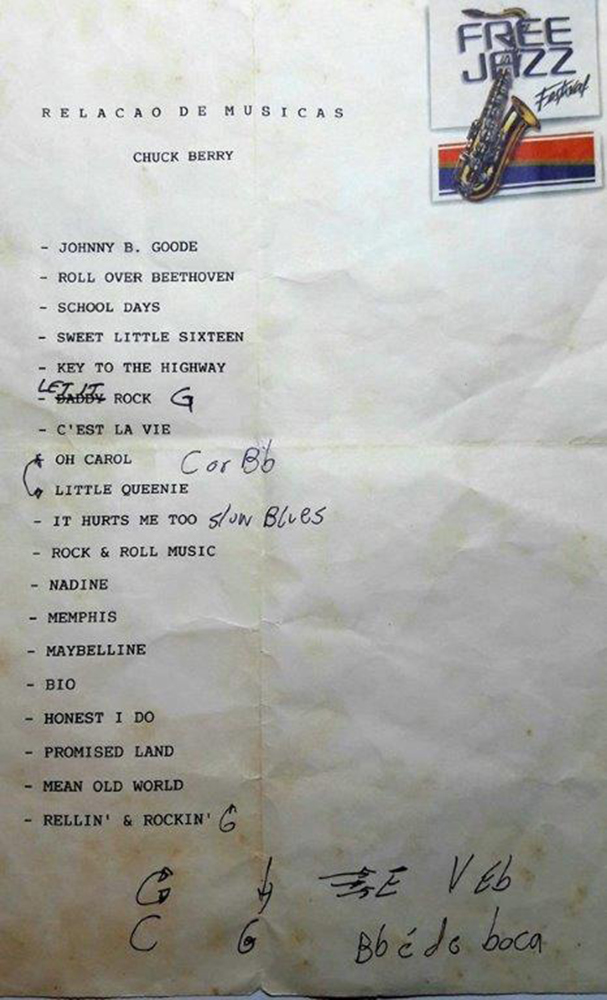 FREE
JAZZ
Festival
RELACAO DE MUSICAS
CHUCK BERRY
- JOHNNY B. GOODE
- ROLL OVER BEETHOVEN
- SCHOOL DAYS
- SWEET LITTLE SIXTEEN
- KEY TO THE HIGHWAY
LET IT
- DADDY ROCK G
- C'EST LA VIE
OH CAROL C or Bb
LITTLE QUEENIE
- IT HURTS ME TOO Slow Blues
- ROCK & ROLL MUSIC
- NADINE
- MEMPHIS
- MAYBELLINE
- BIO
- HONEST I DO
- PROMISED LAND
- MEAN OLD WORLD
- RELLIN' & ROCKIN' G
G E V Eb
C G Bb é de boca